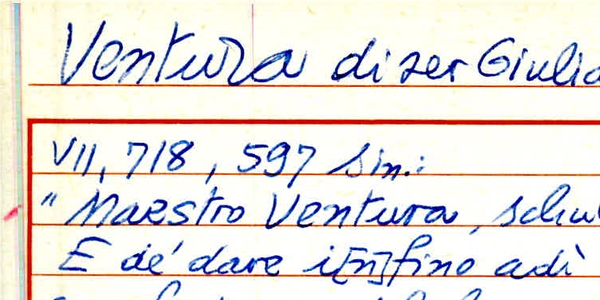 Ventura di ser Giulia
VII, 718, 597 sin.:
"Maestro Ventura, schul
E de' dare i[n]fino adì